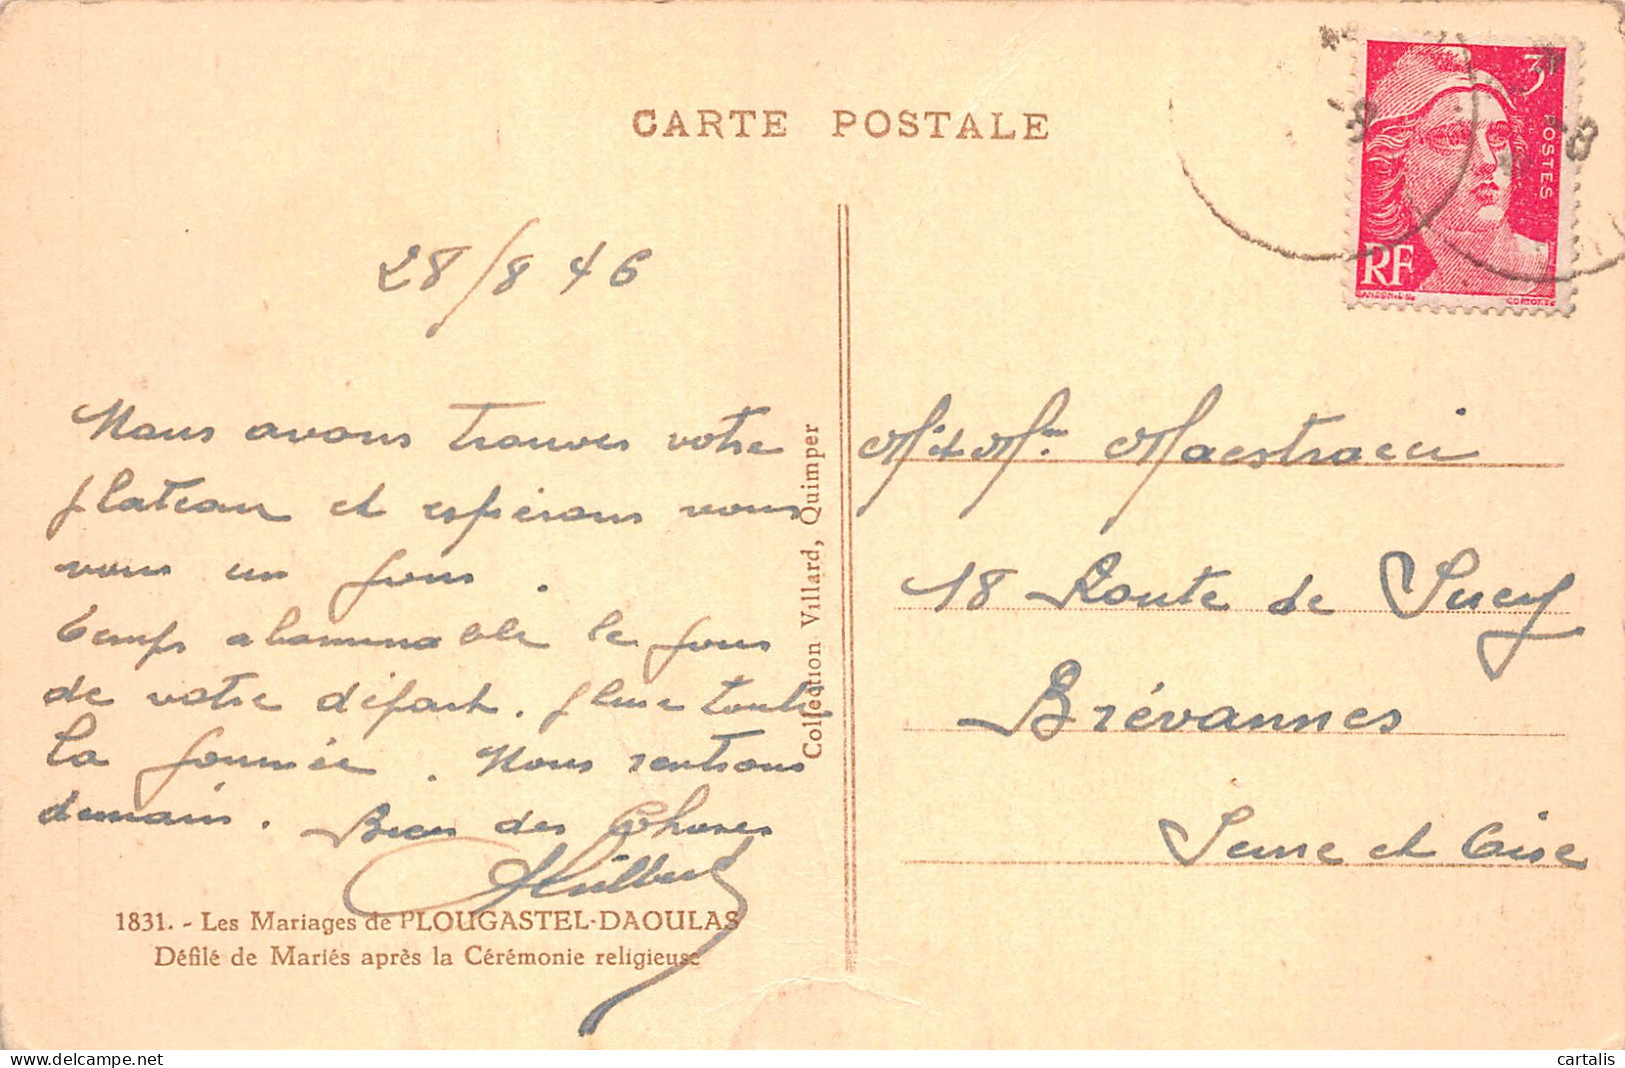 CARTE POSTALE
3F
POSTES
RF
28/8 46
Nous avons trouver votre
plateau et espérons vous
voir un jour.
Temps abominable le jour
de votre départ. pluie toute
la journée. Nous rentrons
demain. Bien des choses
1831. - Les Mariages de PLOUGASTEL-DAOULAS
Défilé de Mariés après la Cérémonie religieuse
Collection Villard, Quimper
Mr et Mme Maestracci
18 Route de Sucy
Brévannes
Seine et Oise
cartalis
https://www.delcampe.net